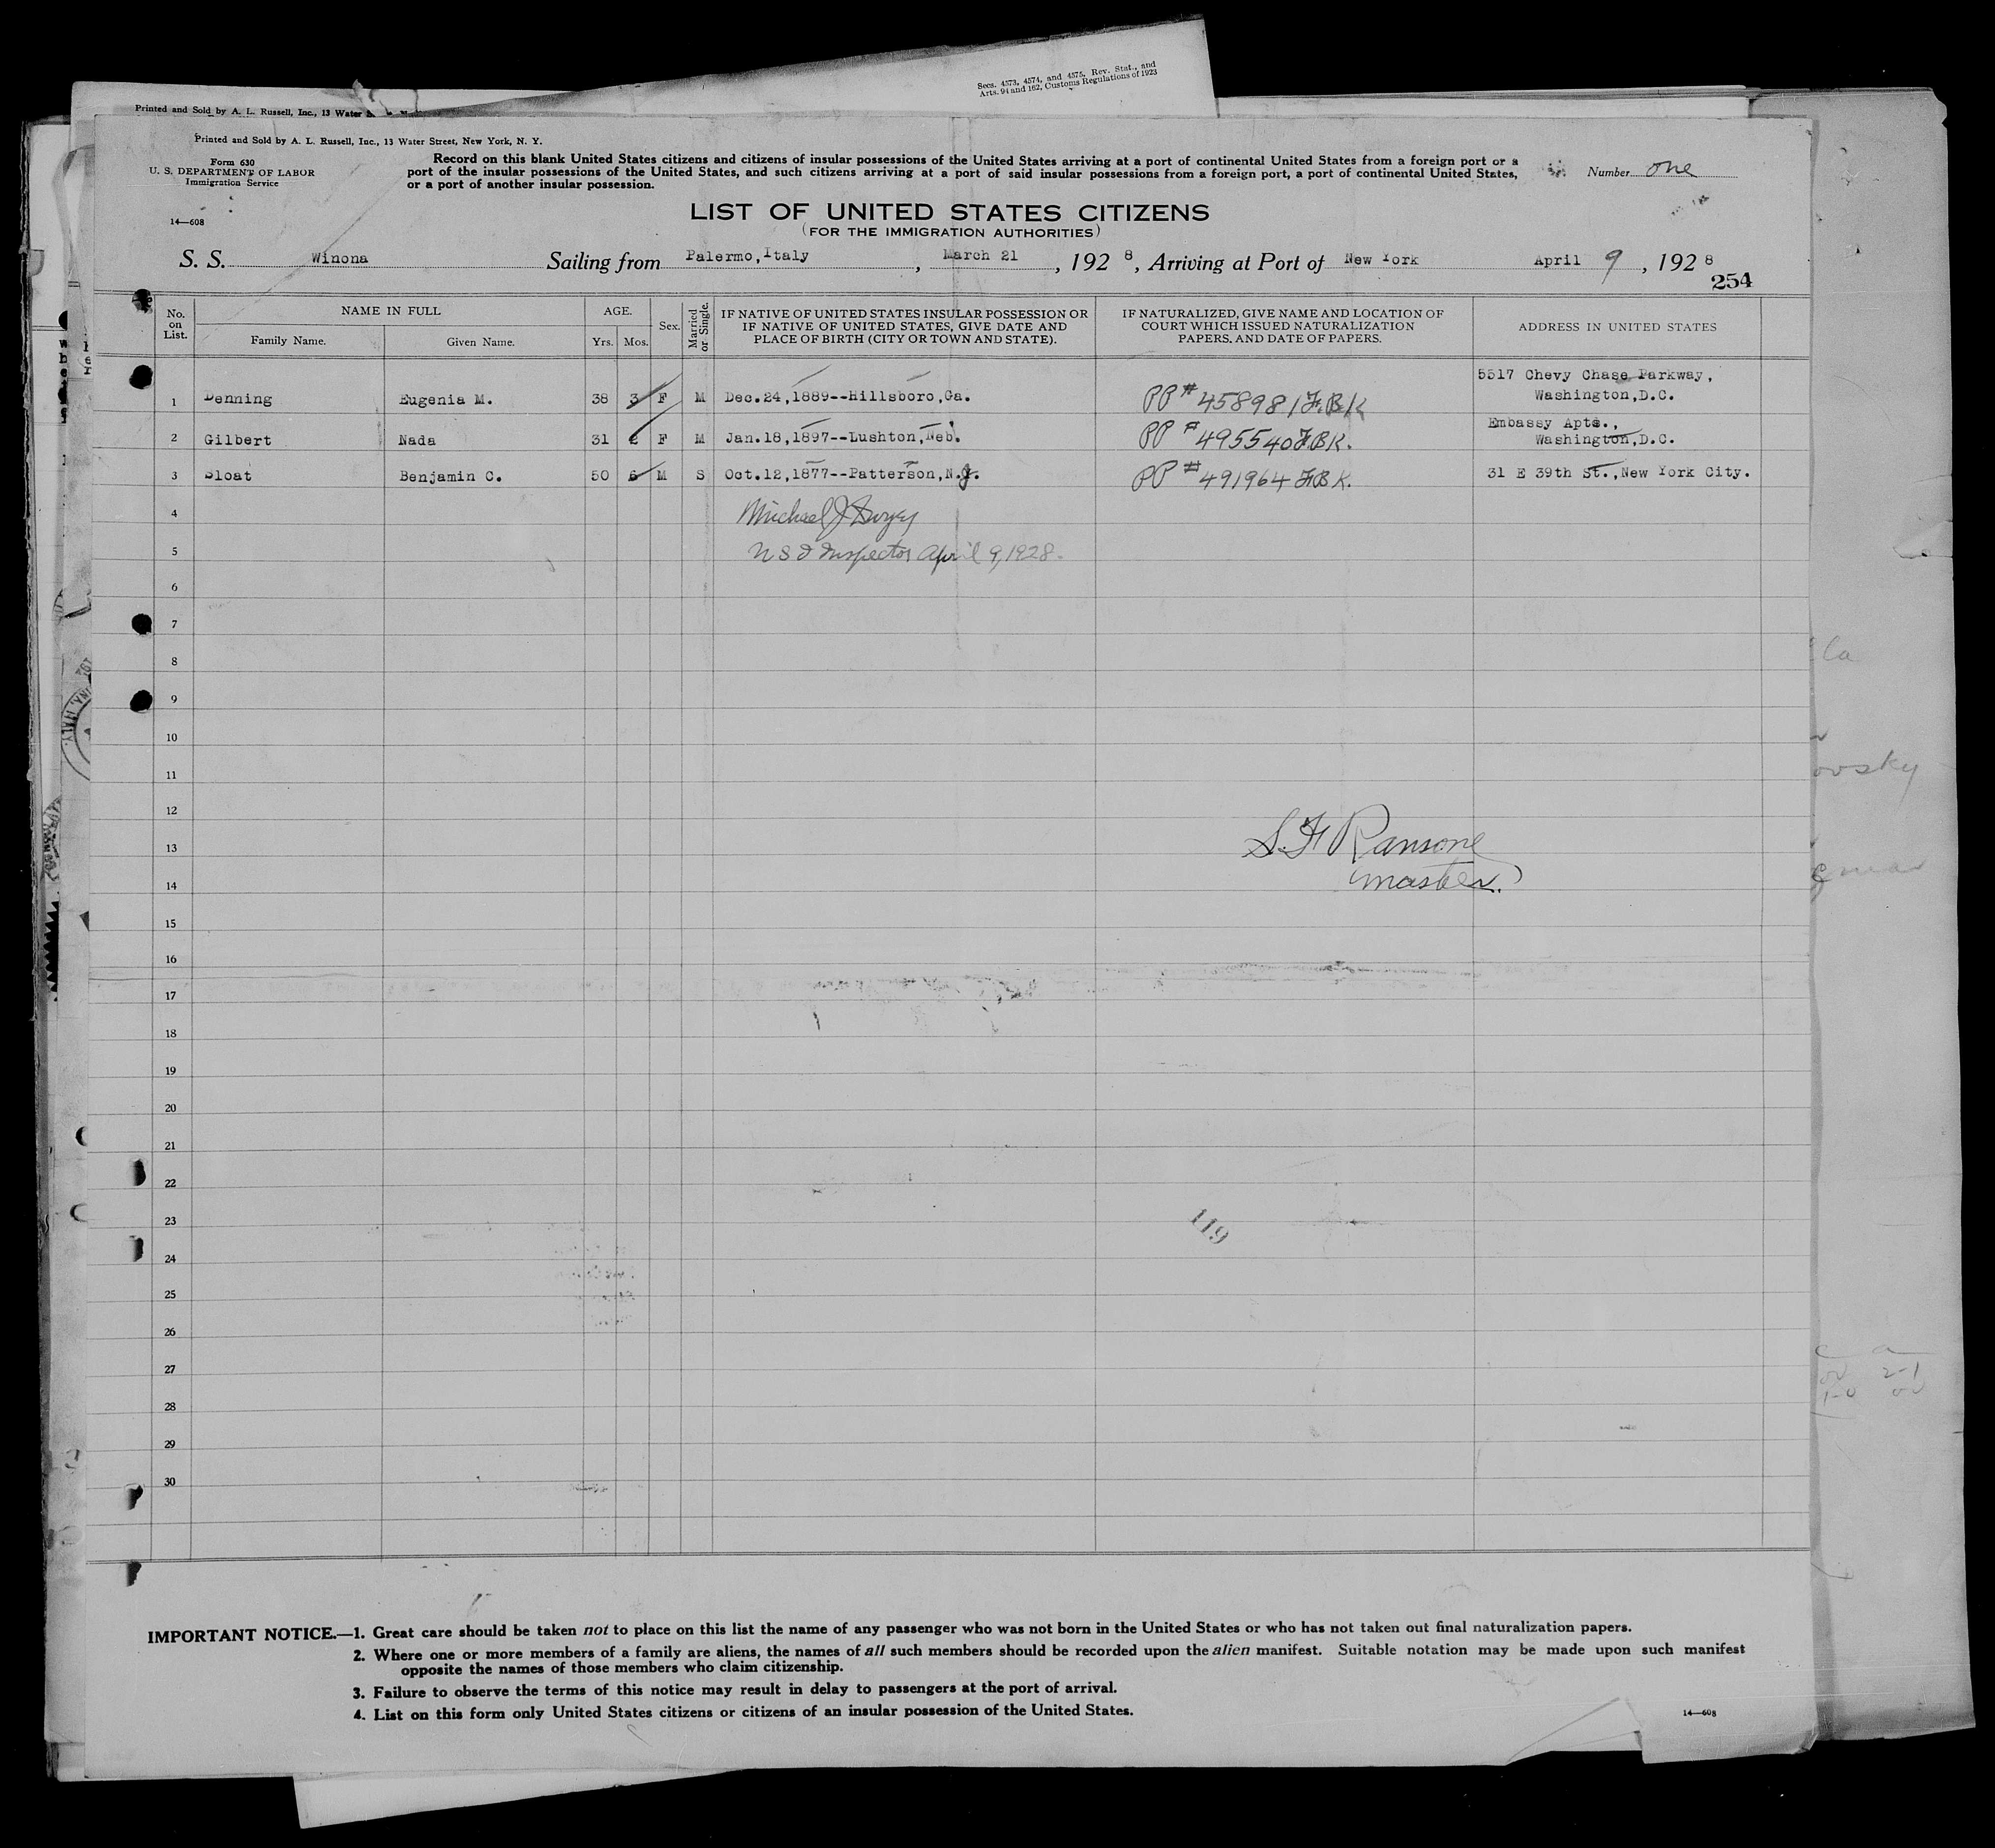 Secs. 4573, 4574, and 4575, Rev. Stat., and
Arts. 94 and 162, Customs Regulations of 1923
Printed and Sold by A. L. Russell, Inc., 13 Water
Printed and Sold by A. L. Russell, Inc., 13 Water Street, New York, N. Y.
Form 630
U. S. DEPARTMENT OF LABOR
Immigration Service
14—608
Record on this blank United States citizens and citizens of insular possessions of the United States arriving at a port of continental United States from a foreign port or a
port of the insular possessions of the United States, and such citizens arriving at a port of said insular possessions from a foreign port, a port of continental United States,
or a port of another insular possession.
Number one
LIST OF UNITED STATES CITIZENS
(FOR THE IMMIGRATION AUTHORITIES)
S. S. Winona Sailing from Palermo, Italy, March 21, 1928, Arriving at Port of New York April 9, 1928
254
No. on List. NAME IN FULL AGE. Sex. Married or Single. IF NATIVE OF UNITED STATES INSULAR POSSESSION OR IF NATIVE OF UNITED STATES, GIVE DATE AND PLACE OF BIRTH (CITY OR TOWN AND STATE). IF NATURALIZED, GIVE NAME AND LOCATION OF COURT WHICH ISSUED NATURALIZATION PAPERS, AND DATE OF PAPERS. ADDRESS IN UNITED STATES
Family Name. Given Name. Yrs. Mos.
5517 Chevy Chase Parkway,
1 Denning Eugenia M. 38 3 F M Dec.24,1889--Hillsboro,Ga. PP# 458981 F.B.K Washington,D.C.
Embassy Apts.,
2 Gilbert Nada 31 2 F M Jan.18,1897--Lushton,Neb. PP# 495540 F.B.K. Washington,D.C.
3 Sloat Benjamin C. 50 6 M S Oct.12,1877--Patterson,N.J. PP# 491964 F.B.K. 31 E 39th St.,New York City.
4 Michael J
5 Inspector April 9, 1928.
6
7
8
9
10
11
12
13 S. F. Ransone
14 (master.)
15
16
17
18
19
20
21
22
23 119
24
25
26
27
28
29
30
IMPORTANT NOTICE.—1. Great care should be taken not to place on this list the name of any passenger who was not born in the United States or who has not taken out final naturalization papers.
2. Where one or more members of a family are aliens, the names of all such members should be recorded upon the alien manifest. Suitable notation may be made upon such manifest
opposite the names of those members who claim citizenship.
3. Failure to observe the terms of this notice may result in delay to passengers at the port of arrival.
4. List on this form only United States citizens or citizens of an insular possession of the United States.
14—608